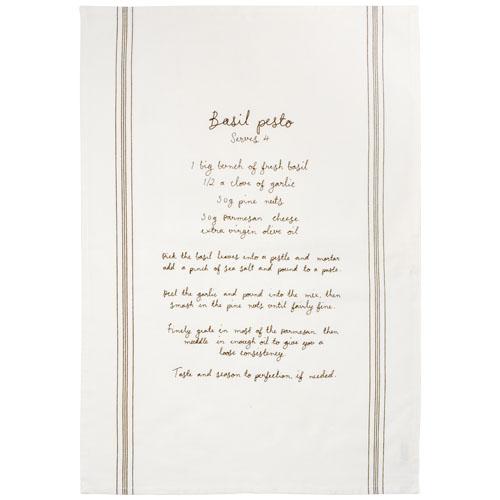 Basil pesto
Serves 4
1 big bunch of fresh basil
1/2 a clove of garlic
30g pine nuts
30g parmesan cheese
extra virgin olive oil
Pick the basil leaves into a pestle and mortar
add a pinch of sea salt and pound to a paste.
Peel the garlic and pound into the mix, then
smash in the pine nuts until fairly fine.
Finely grate in most of the parmesan, then
muddle in enough oil to give you a
loose consistency.
Taste and season to perfection, if needed.